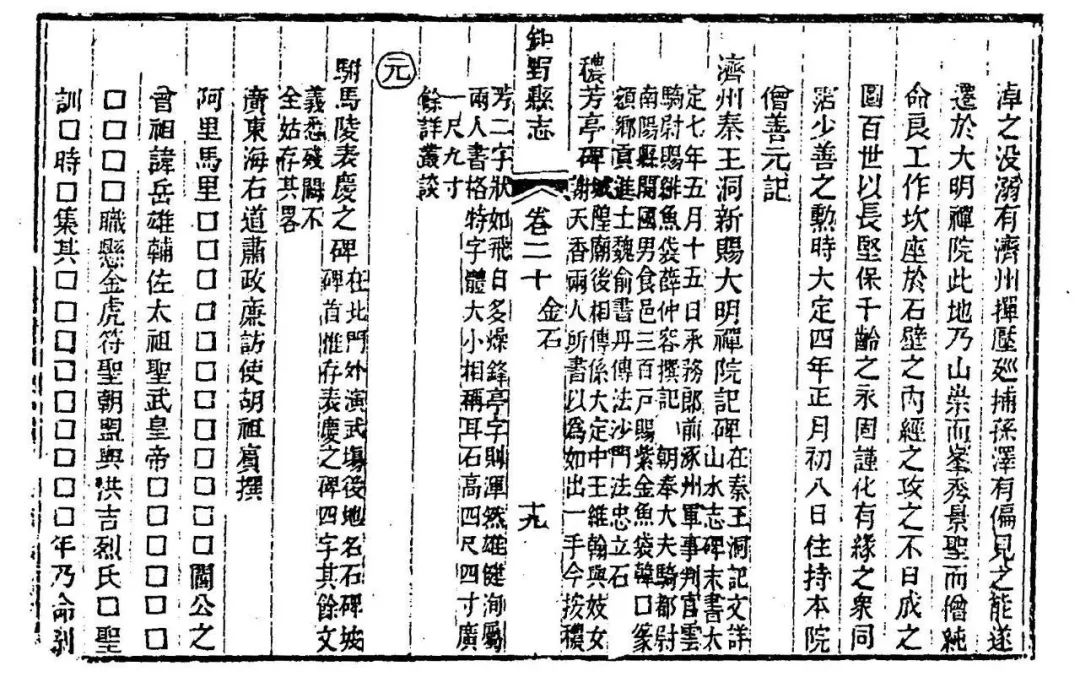 淖之没溺有濟州撣壓廵捕孫澤有偏見之能遂
遷於大明禪院此地乃山崇而峯秀景聖而僧純
命良工作坎座於石壁之内經之攻之不日成之
圖百世以長堅保千齡之永固謹化有緣之衆同
沾少善之勲時大定四年正月初八日住持本院
僧善元記
濟州秦王洞新賜大明禪院記碑在秦王洞記文詳
山水志碑末書大
定七年五月十五日承務郎前涿州軍事判官雲
騎尉賜緋魚袋薛仲容撰記 朝奉大夫騎都尉
南陽縣開國男食邑三百戸賜紫金魚袋韓口篆
額鄉貢進士魏俞書丹傳法沙門法忠立石
穠芳亭碑城隍廟後相傳係大定中王維翰與妓女
謝天香兩人所書以爲如出一手今按穠
鉅野縣志
卷二十
金石
十九
芳二字狀如飛白多燥鋒亭字則渾然雄健洵屬
兩人書格特字體大小相稱耳石高四尺四寸廣
一尺九寸
餘詳叢談
元
駙馬陵表慶之碑在北門外演武塲後地名石碑坡
碑首惟存表慶之碑四字其餘文
義悉殘闕不
全姑存其畧
廣東海右道肅政亷訪使胡祖賓撰
阿里馬里口口口口口口口口口口闊公之
曾祖諱岳雄輔佐太祖聖武皇帝口口口口口
口口口口職懸金虎符聖朝盟與洪吉烈氏口聖
訓口時口集其口口口口口口口口年乃命别